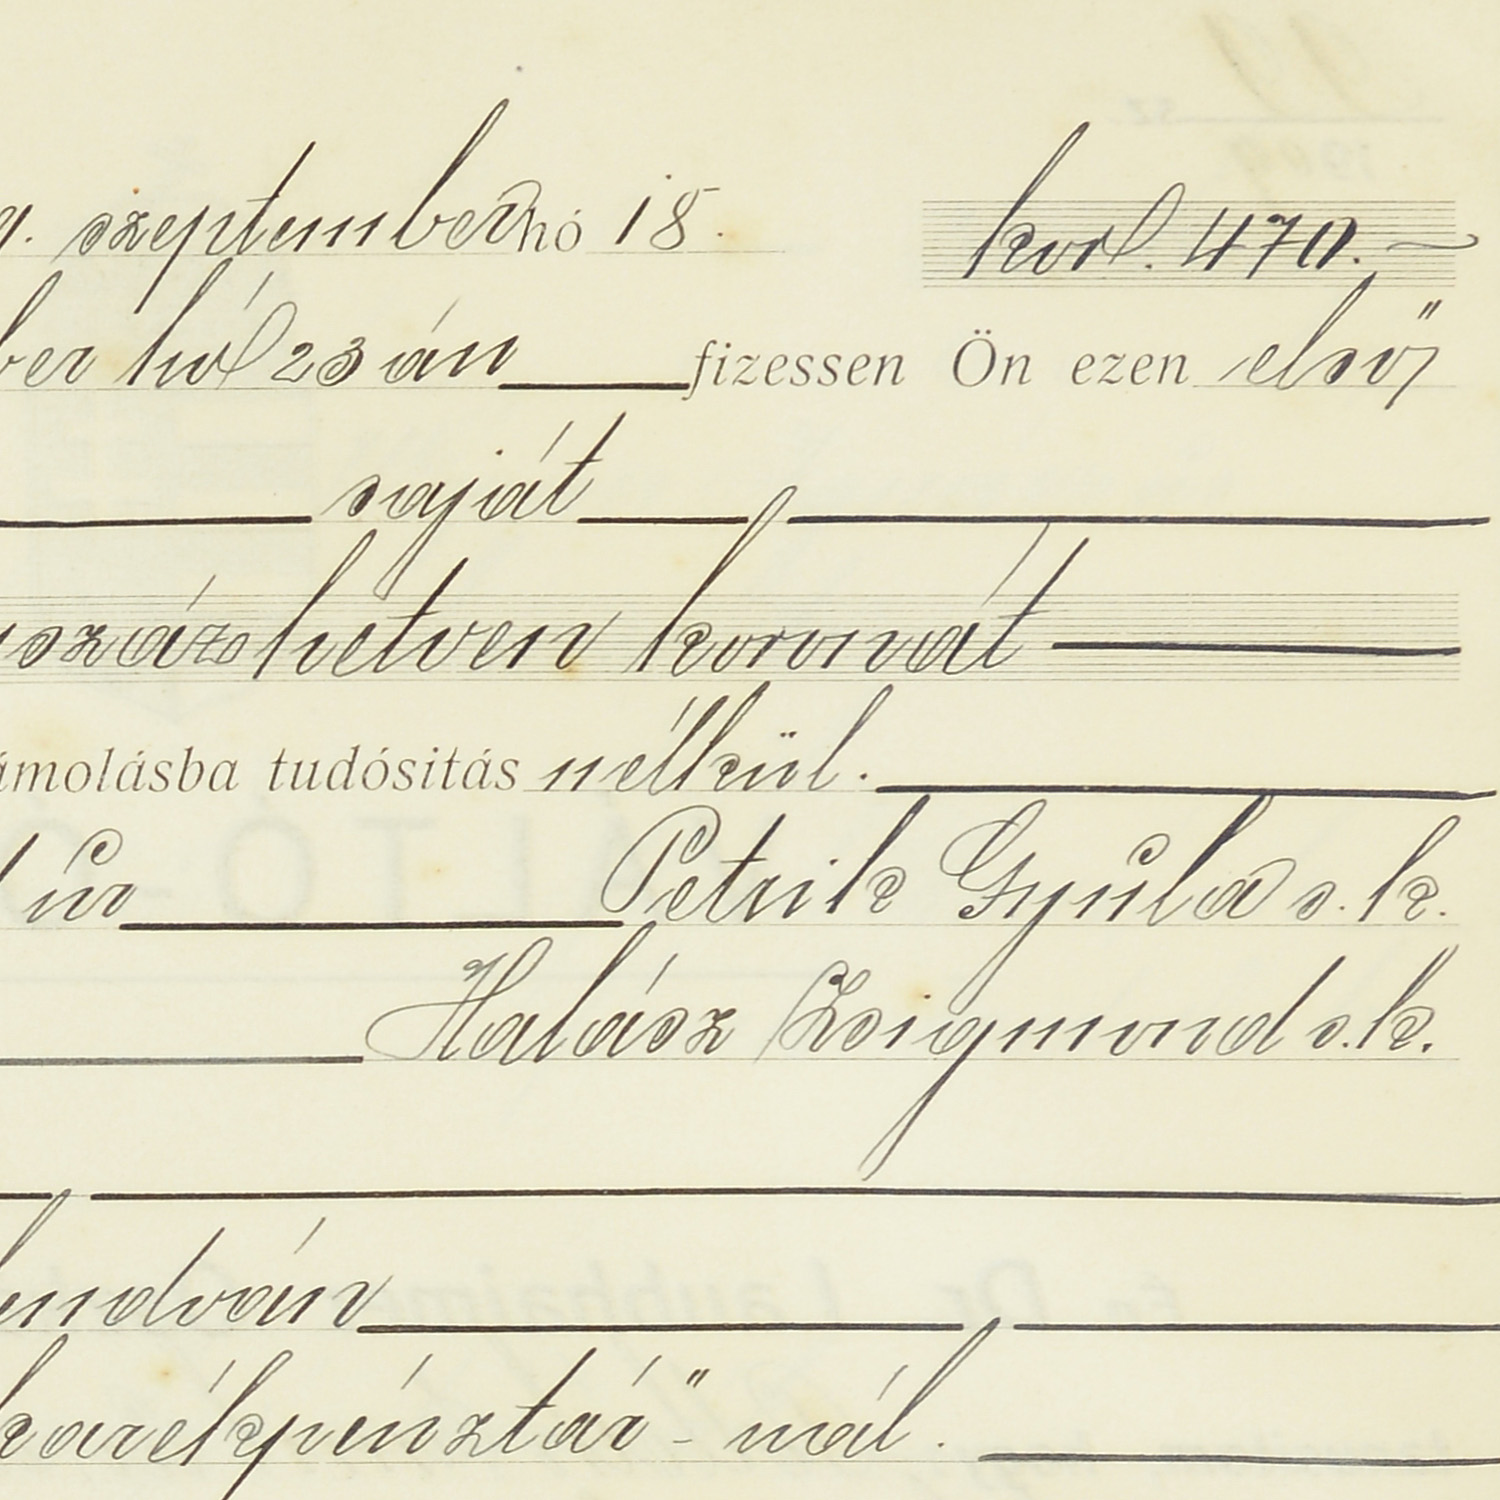 szeptember hó 18. kor. 470.—
ber hó 23 án fizessen Ön ezen első
saját
száz hetven koronát
ámolásba tudósitás nélkül.
úr Petrik Gyula s. k.
Halász Zsigmond s. k.
endván
karékpénztár"-nál.